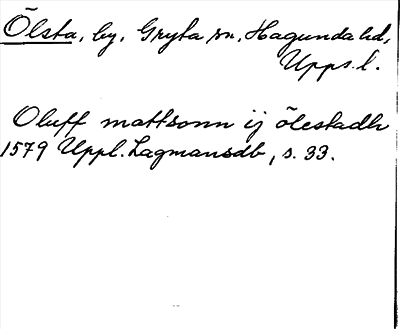 Ölsta, by, Gryta sn, Hagunda hd,
Upps. l.
Oluff mattsonn ij ölestadh
1579 Uppl. Lagmansdb, s. 33.